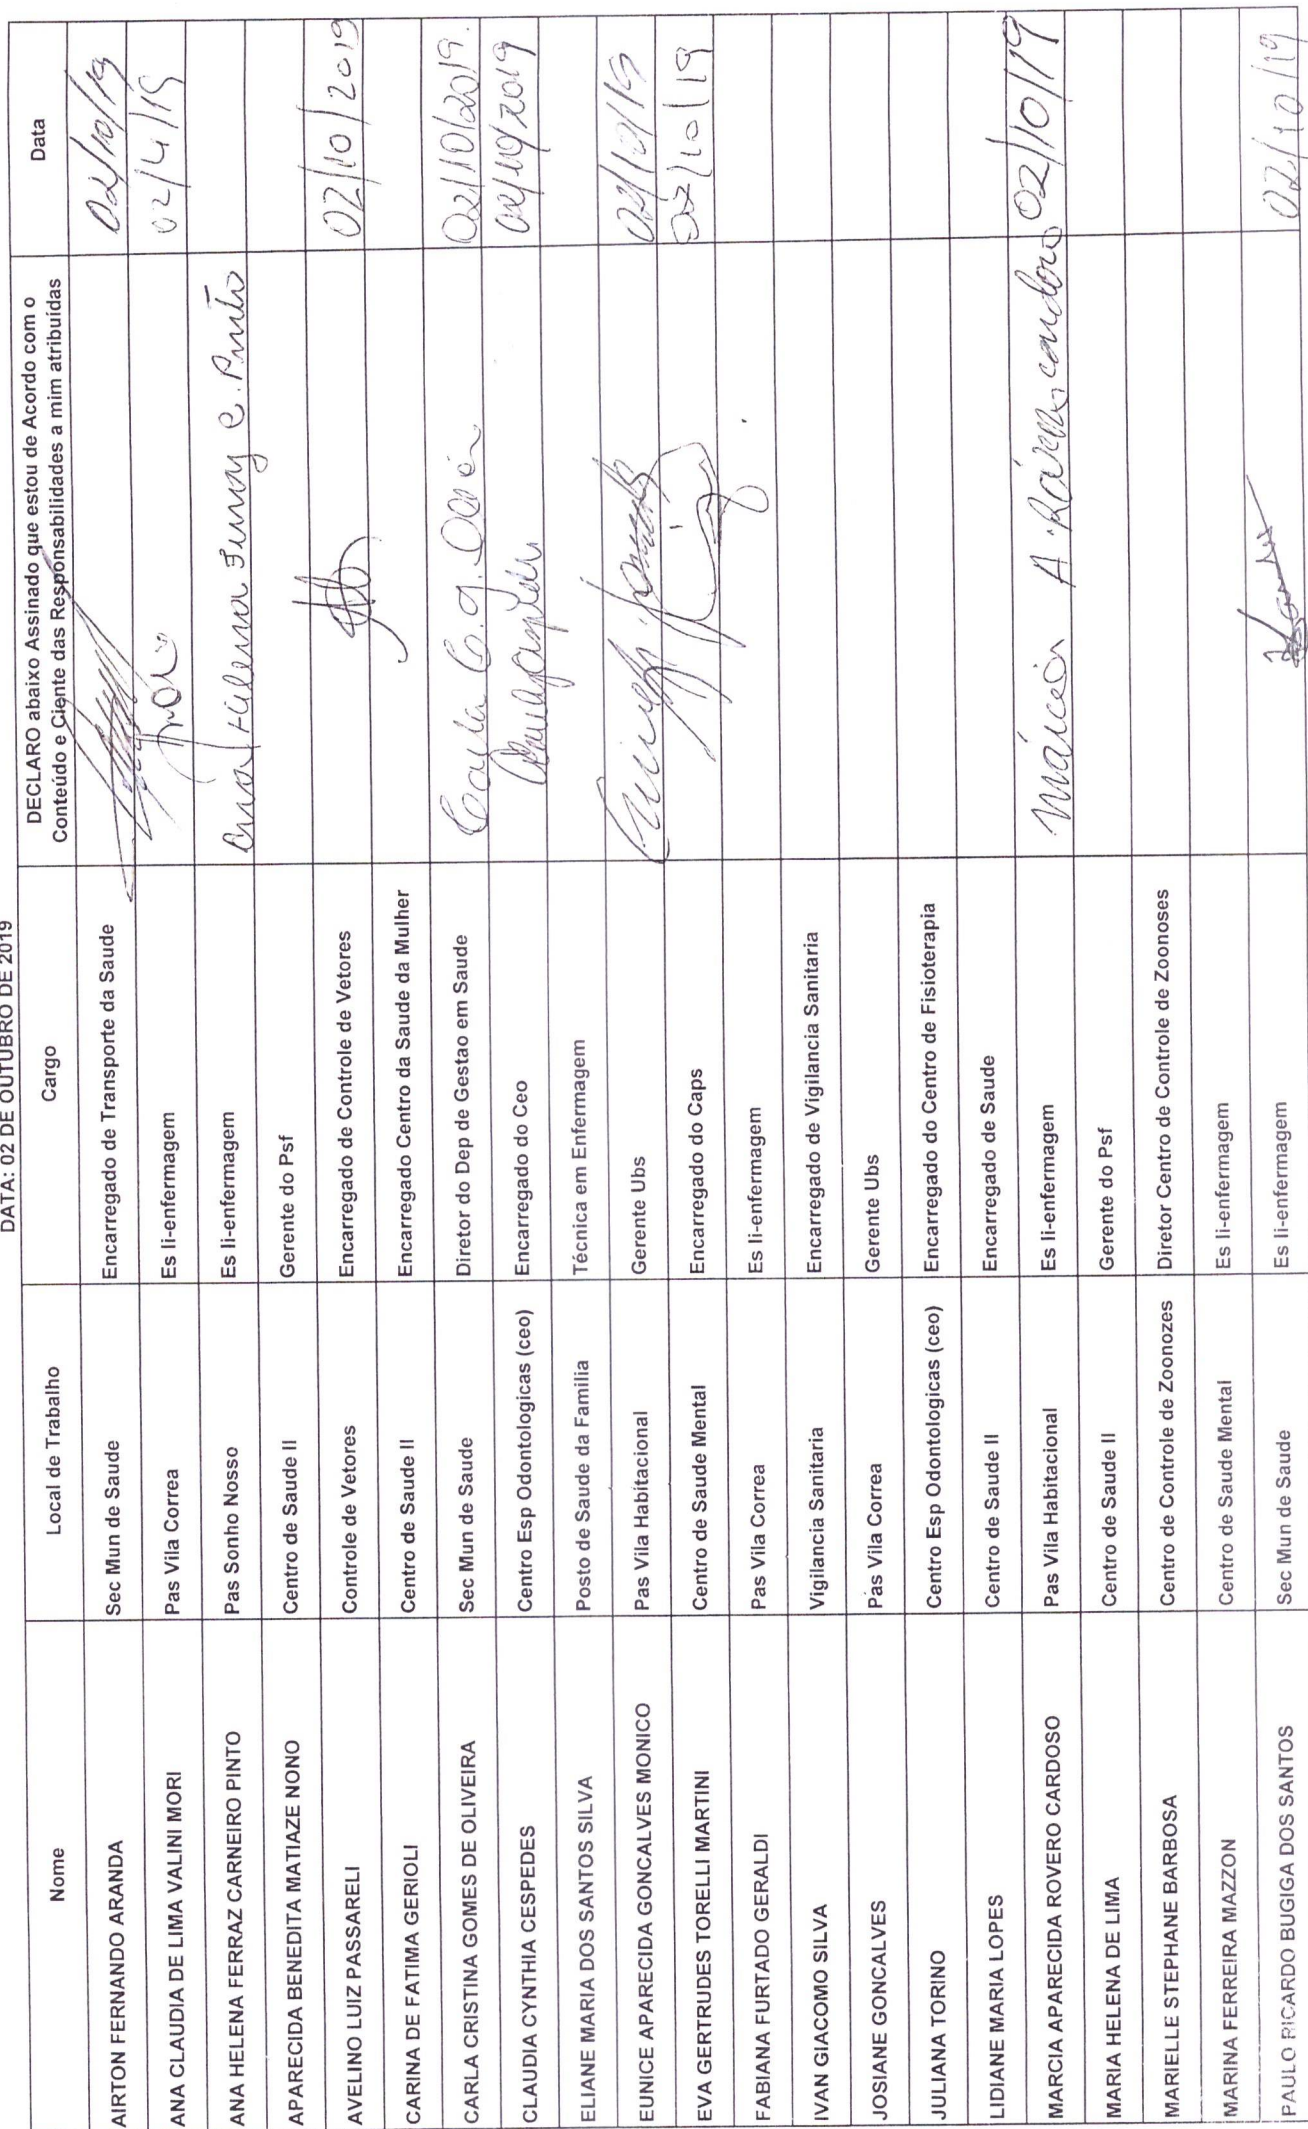 DATA: 02 DE OUTUBRO DE 2019
Nome Local de Trabalho Cargo DECLARO abaixo Assinado que estou de Acordo com o Data
Conteúdo e Ciente das Responsabilidades a mim atribuídas
AIRTON FERNANDO ARANDA Sec Mun de Saude Encarregado de Transporte da Saude 02/10/19
ANA CLAUDIA DE LIMA VALINI MORI Pas Vila Correa Es Ii-enfermagem
ANA HELENA FERRAZ CARNEIRO PINTO Pas Sonho Nosso Es Ii-enfermagem
APARECIDA BENEDITA MATIAZE NONO Centro de Saude II Gerente do Psf
AVELINO LUIZ PASSARELI Controle de Vetores Encarregado de Controle de Vetores 02/10/2019
CARINA DE FATIMA GERIOLI Centro de Saude II Encarregado Centro da Saude da Mulher
CARLA CRISTINA GOMES DE OLIVEIRA Sec Mun de Saude Diretor do Dep de Gestao em Saude 02/10/2019.
CLAUDIA CYNTHIA CESPEDES Centro Esp Odontologicas (ceo) Encarregado do Ceo 02/10/2019
ELIANE MARIA DOS SANTOS SILVA Posto de Saude da Familia Técnica em Enfermagem
EUNICE APARECIDA GONCALVES MONICO Pas Vila Habitacional Gerente Ubs 02/10/19
EVA GERTRUDES TORELLI MARTINI Centro de Saude Mental Encarregado do Caps 02/10/19
FABIANA FURTADO GERALDI Pas Vila Correa Es Ii-enfermagem
IVAN GIACOMO SILVA Vigilancia Sanitaria Encarregado de Vigilancia Sanitaria
JOSIANE GONCALVES Pas Vila Correa Gerente Ubs
JULIANA TORINO Centro Esp Odontologicas (ceo) Encarregado do Centro de Fisioterapia
LIDIANE MARIA LOPES Centro de Saude II Encarregado de Saude
MARCIA APARECIDA ROVERO CARDOSO Pas Vila Habitacional Es Ii-enfermagem Márcia A 02/10/19
MARIA HELENA DE LIMA Centro de Saude II Gerente do Psf
MARIELLE STEPHANE BARBOSA Centro de Controle de Zoonozes Diretor Centro de Controle de Zoonoses
MARINA FERREIRA MAZZON Centro de Saude Mental Es Ii-enfermagem
PAULO RICARDO BUGIGA DOS SANTOS Sec Mun de Saude Es Ii-enfermagem 02/10/19